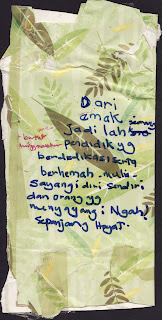 Dari
emak
Jadilah seorang
pendidik yg
berdedikasi serta
berhemah mulia.
Sayangi diri sendiri
dan orang yg
menyayangi Ngah!
Sepanjang Hayat.